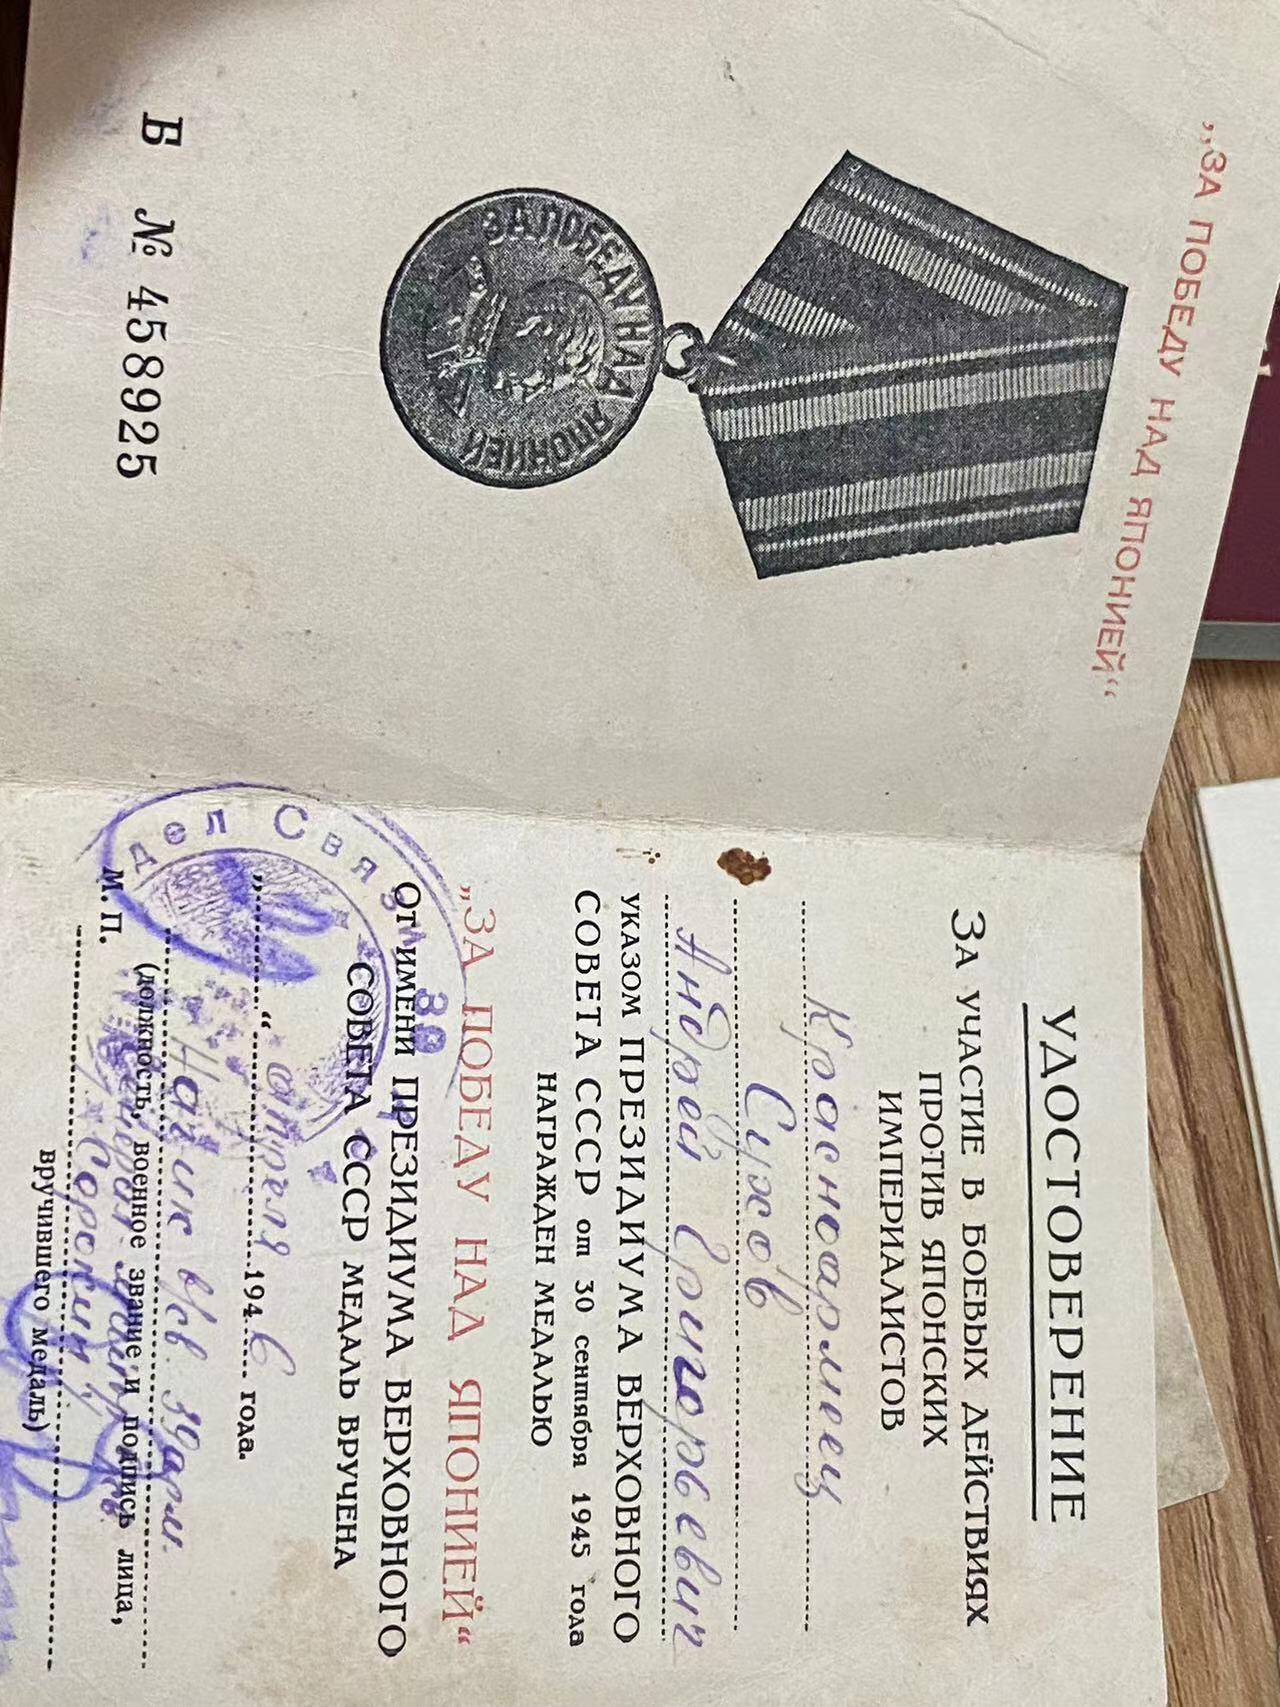 „ЗА ПОБЕДУ НАД ЯПОНИЕЙ“
ЗА ПОБЕДУ НАД ЯПОНИЕЙ
Б № 458925
УДОСТОВЕРЕНИЕ
ЗА УЧАСТИЕ В БОЕВЫХ ДЕЙСТВИЯХ
ПРОТИВ ЯПОНСКИХ
ИМПЕРИАЛИСТОВ
Красноармеец
Сухов
Андрей Григорьевич
УКАЗОМ ПРЕЗИДИУМА ВЕРХОВНОГО
СОВЕТА СССР от 30 сентября 1945 года
НАГРАЖДЕН МЕДАЛЬЮ
„ЗА ПОБЕДУ НАД ЯПОНИЕЙ“
От имени ПРЕЗИДИУМА ВЕРХОВНОГО
СОВЕТА СССР МЕДАЛЬ ВРУЧЕНА
„ “ апреля 1946 года.
Начик в/св. 39 арм.
М. П. (должность, военное звание и подпись лица,
Сорокин
вручившего медаль)
дел Связи
39